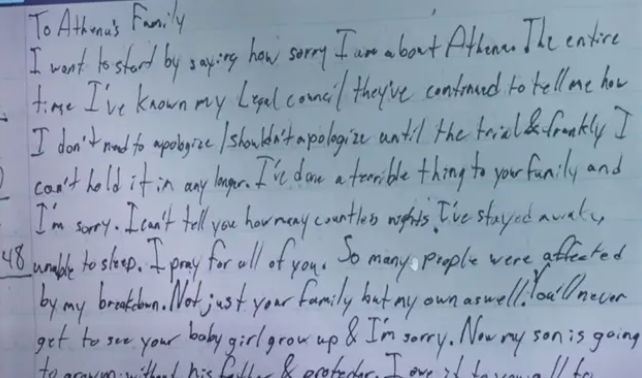 To Athena's Family
I want to start by saying how sorry I am about Athena. The entire
time I've known my Legal council they've continued to tell me how
I don't need to apologize / shouldn't apologize until the trial & frankly I
can't hold it in any longer. I've done a terrible thing to your family and
I'm sorry. I can't tell you how many countless nights I've stayed awake,
48 unable to sleep. I pray for all of you. So many people were affected
by my breakdown. Not just your family but my own aswell. You'll never
get to see your baby girl grow up & I'm sorry. Now my son is going
to grow up without his father & protector. I owe it to you all to